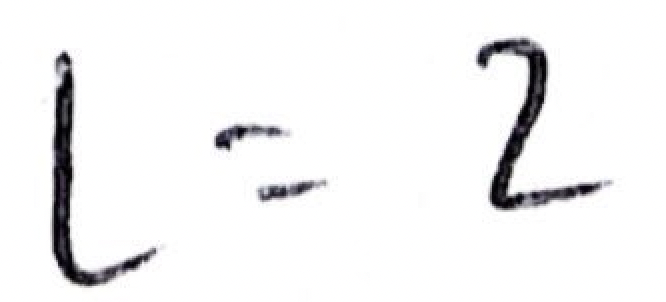 L = 2